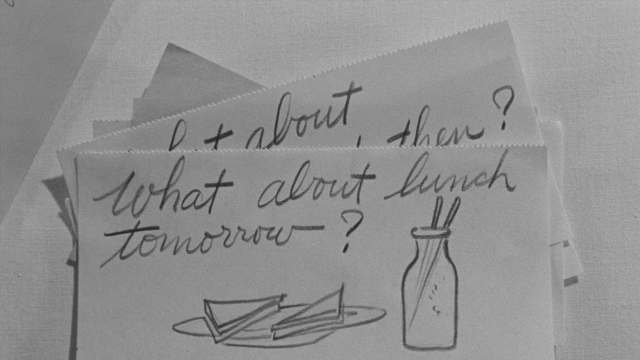 about
then?
What about lunch
tomorrow - ?